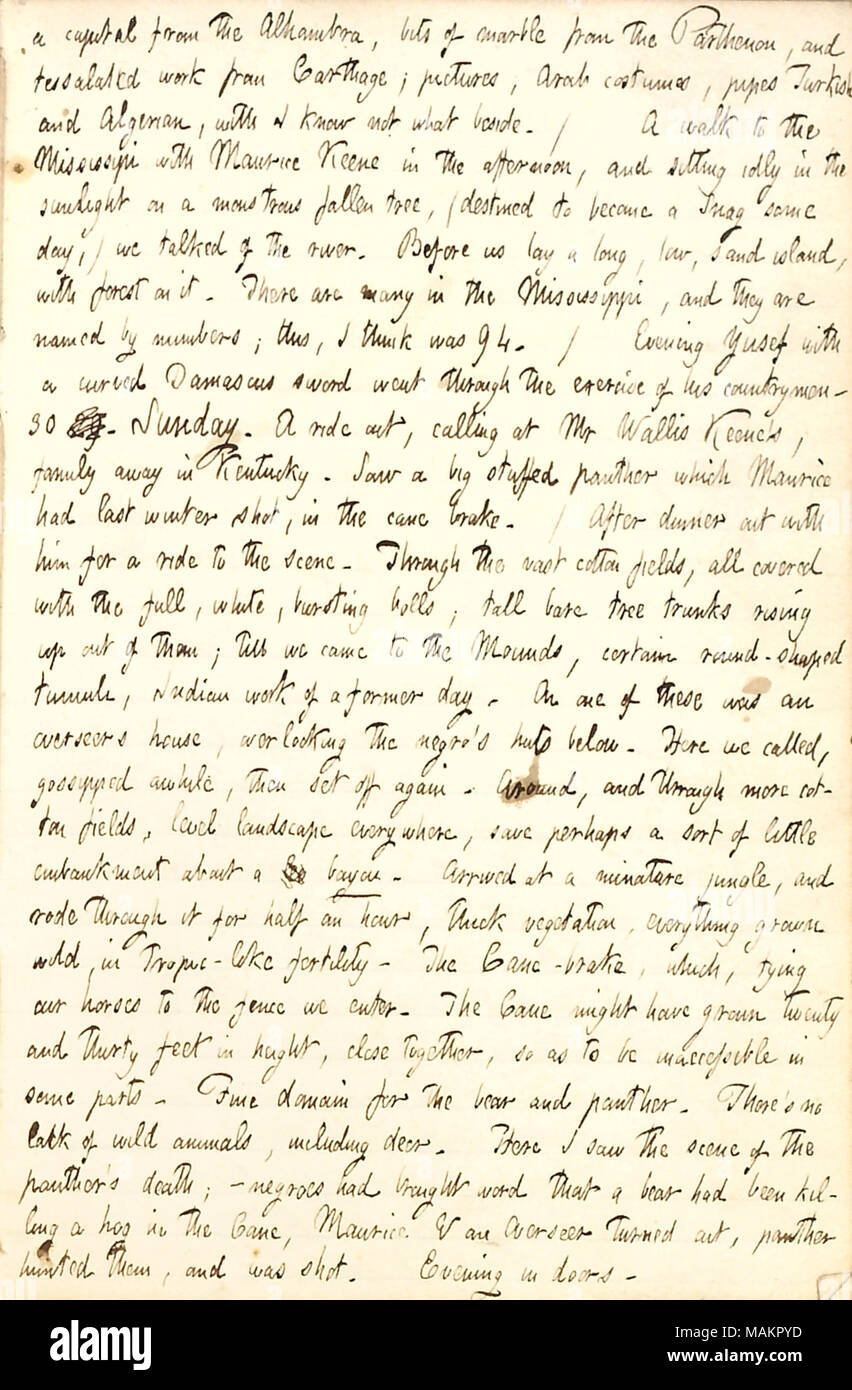 a capital from the Alhambra, bits of marble from the Parthenon, and
tessalated work from Carthage; pictures, Arab costumes, pipes Turkish
and Algerian, with I know not what beside. / A walk to the
Mississippi with Maurice Keene in the afternoon, and sitting idly in the
sunlight on a monstrous fallen tree, (destined to become a Snag some
day,) we talked of the river. Before us lay a long, low, sand island,
with forest on it. There are many in the Mississippi, and they are
named by numbers; this, I think was 94. / Evening Yusef with
a curved Damascus sword went through the exercise of his countrymen.
30. Sunday. A ride out, calling at Mr Wallis Keene's,
family away in Kentucky. Saw a big stuffed panther which Maurice
had last winter shot, in the cane brake. / After dinner out with
him for a ride to the scene. Through the vast cotton fields, all covered
with the full, white, bursting bolls; tall bare tree trunks rising
up out of them; till we came to the Mounds, certain round-shaped
tumuli, Indian work of a former day. On one of these was an
overseers house, overlooking the negro's huts below. Here we called,
gossipped awhile, then set off again. Around, and through more cot-
ton fields, level landscape everywhere, save perhaps a sort of little
embankment about a bayou. Arrived at a minature jungle, and
rode through it for half an hour, thick vegetation, everything grown
wild, in Tropic-like fertility. The Cane-brake, which, tying
our horses to the fence we enter. The Cane might have grown twenty
and thirty feet in height, close together, so as to be inaccessible in
some parts. Fine domain for the bear and panther. There's no
lack of wild animals, including deer. Here I saw the scene of the
panther's death; - negroes had brought word that a bear had been kil-
ling a hog in the Cane, Maurice & an overseer turned out, panther
hunted them, and was shot. Evening in doors.
alamy
Image ID: MAKPYD
www.alamy.com